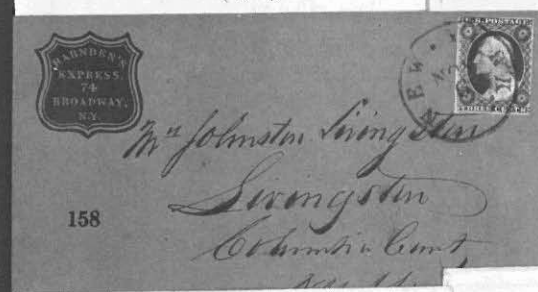 HARNDEN'S
EXPRESS,
74
BROADWAY,
N.Y.
U.S. POSTAGE
THREE CENTS
NEW
Mrs Johnston Livingston
Livingston
Columbia County
158